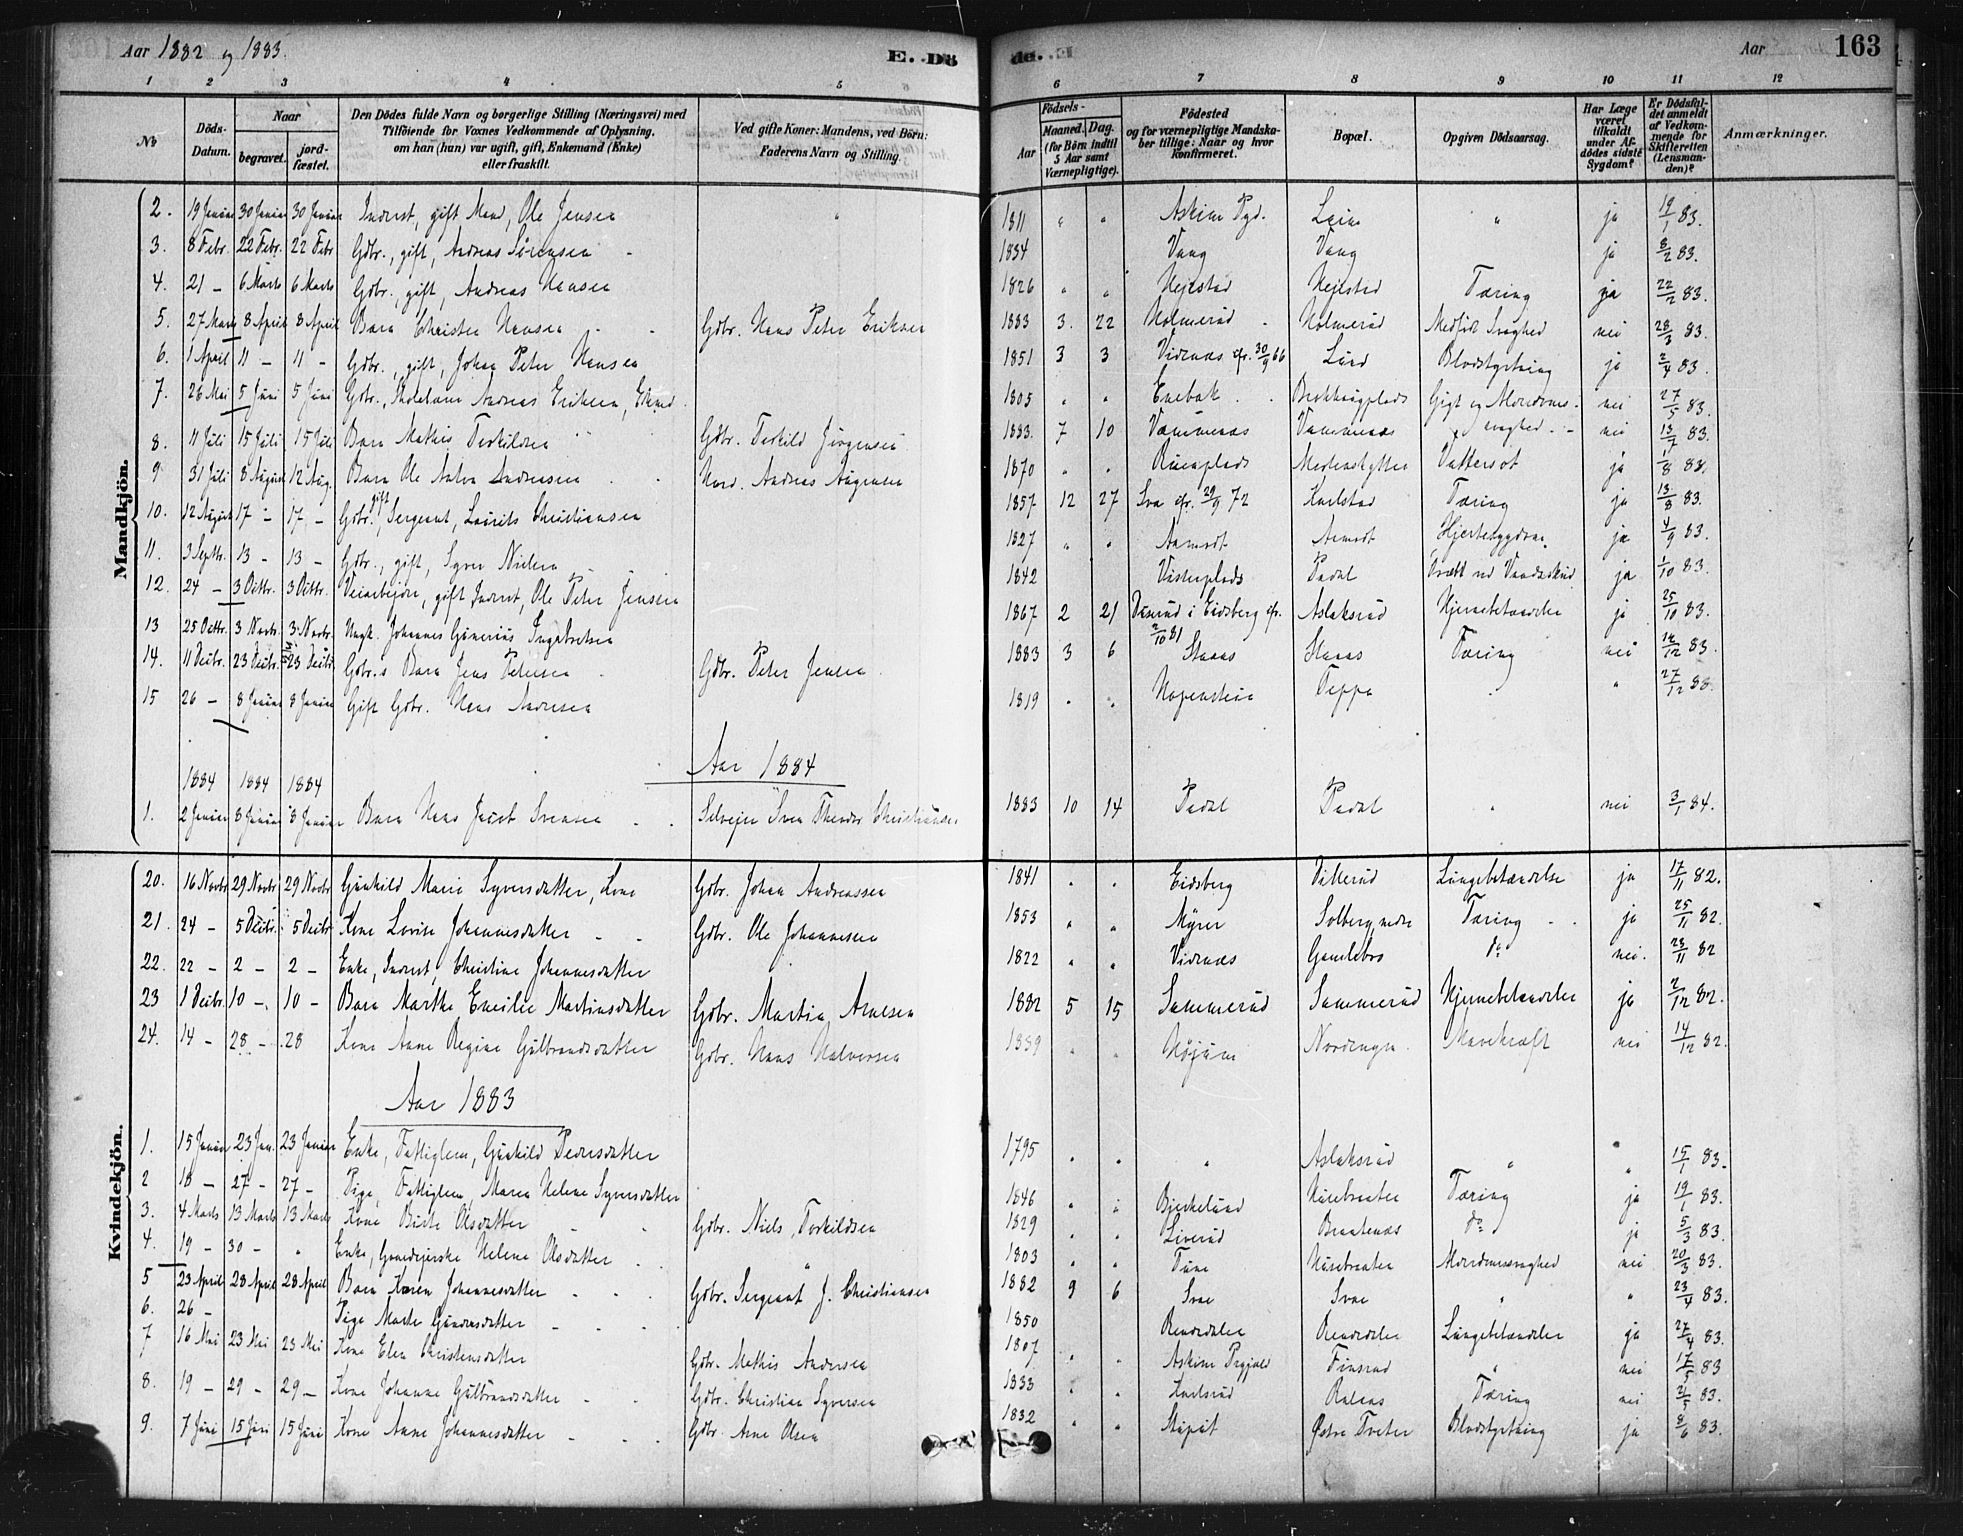 Aar 1882 og 1883.
E. Dö
de. E.
Aar
163
1 2 3 4 5 6 7 8 9 10 11 12
No
Döds-Datum.
Naar
begravet.
jordfæstet.
Den Dödes fulde Navn og borgerlige Stilling (Næringsvei) med Tilföiende for Voxnes Vedkommende af Oplysning, om han (hun) var ugift, gift, Enkemand (Enke) eller fraskilt.
Ved gifte Koner: Mandens, ved Börn: Faderens Navn og Stilling.
Födsels-
Aar
Maaned. Dag.
(for Börn indtil 5 Aar samt Værnepligtige).
Födested og for værnepligtige Mandskaber tillige: Naar og hvor Konfirmeret.
Bopæl.
Opgiven Dödsaarsag.
Har Læge været tilkaldt under Afdödes sidste Sygdom?
Er Dödsfaldet anmeldt af Vedkommende for Skifteretten (Lensmanden)?
Anmærkninger.
Mandkjön.
2. 19 Januar 30 Januar 30 Januar Inderst, gift Mand, Ole Jensen " 1811 " " Askim Pgd. " ja 19/1 83.
3. 8 Febr. 22 Febr. 22 Febr Gdbr., gift, Andreas Sörensen 1834 Vang Vang ja 8/2 83.
4. 21 – 6 Marts 6 Marts Gdbr., gift, Andreas Hansen 1826 " " Hejlstad Hejlstad Tæring ja 22/2 83.
5. 27 Marts 8 April 8 April Barn Christen Hansen Gdbr. Hans Peter Eriksen 1883 3. 22 Holmerud Holmerud Medfødt Svaghed nei 28/3 83.
6. 1 April 11 – 11 – Gdbr., gift, Johan Peter Hansen 1851 3 3 Vidnæs cfr. 30/9 66 Lund Blodstyrtning ja 2/4 83.
7. 26 Mai 5 Juni 5 Juni Gdbr., Andreas Eriksen, Ekmd. 1805 " " Enebak Gigt og Alderdoms- nei 27/5 83.
svaghed
8. 11 Juli 15 Juli 15 Juli Barn Mathis Torkildsen Gdbr. Torkild Jörgensen 1883. 7 10 Vammenæs Vammenæs nei 13/7 83.
9 31 Juli 8 August 12 Aug. Barn Ole Anton Andreasen Andreas 1870 " " Vattersot ja 1/8 83.
10. 12 August 17 – 17 – Gdbr., gift Sergeant, Laurits Christiansen 1857 12 27 Svae cfr. 29/9 72 Karlstad Tæring ja 13/8 83.
11. 3 Septbr. 13 – 13 – Gdbr., gift, Syver Nielsen 1827 " " Aamodt Aamodt Hjertesygdom ja 4/9 83.
12. 24 – 3 Octbr. 3 Octbr. Veiarbejder, gift Inderst, Ole Peter Jensen 1842 Padal Dræbt ved ja 1/10 83.
13 25 Octbr. 3 Novbr. 3 Novbr. Ungk. Johannes Gunerius Ingebretsen 1867 2 21 i Eidsberg cfr. 2/10 81 Aslaksrud Hjernebetændelse ja 25/10 83.
14. 11 Decbr. 23 Decbr. 23 Decbr Gdbr.s Barn Jens Petersen Gdbr. Peter Jensen 1883 3 6 Skaas Skaas Tæring nei 12/12 83.
15 26 – 8 Januar 8 Januar Gift Gdbr. Hans Andersen 1819 " " Teppa " " 27/12 83.
Aar 1884
1884 1884 1884
1. 2 Januar 8 Januar 8 Januar Barn Hans Jacob Svensen Selvejer Sven Theodor Christiansen 1883 10 14 Padal Padal " nei 3/1 84.
Kvindekjön.
20. 16 Novbr 29 Novbr 29 Novbr Gunhild Marie Syversdatter, Kone Gdbr. Johan Andreassen 1841 " " Eidsberg Lungebetændelse ja 17/11 82.
21. 24 – 5 Decbr. 5 Decbr Kone Lovise Johannesdatter Gdbr. Ole Johannesen 1853 " " Myrer Solberg, nedre Tæring ja 25/11 82.
22. 22 – 2 – 2 – Enke, Inderst, Christine Johannesdatter 1822 " " Vidnæs Gamlebro do nei. 23/11 82
23 1 Decbr. 10 – 10 – Barn Marthe Emilie Martinsdatter Gdbr. Martin Arnesen 1882 5 15 Sammerud Sammerud Hjernebetændelse ja 2/12 82.
24. 14 – 28 – 28 Kone Anne Regine Gulbrandsdatter Gdbr. Hans Halvorsen 1839 " " Højum Mavekræft nei 14/12 82.
Aar 1883
1. 15 Januar 23 Jan. 23 Januar Enke, Fattiglem, Gunhild Pedersdatter 1795 " " " Aslaksrud " " 15/1 83.
2 18 – 27 – 27 – Pige, Fattiglem, Maren Helene Syversdatter 1846 " " Bjerkelund Husebraaten Tæring ja 19/1 83.
3. 4 Marts 13 Marts 13 Marts Kone Birte Olsdatter Gdbr. Niels Torkildsen 1829 " " Liverud Braatenæs do ja 5/3 83.
4. 19 – 30 – " Enke, Helene Olsdatter " 1803 " " Tune Husebraaten Alderdomssvaghed nei 20/3 83.
5 23 April 28 April 28 April Barn Karen Johannesdatter Gdbr. Sergeant J. Christiansen 1882 9 6 Svae Svae " " 23/4 83.
6. 26 – Pige Marte Gundersdatter 1850 Lungebetændelse ja 27/4 83.
7 16 Mai 23 Mai 23 Mai Kone Elen Christensdatter Gdbr. Mathis Andersen 1807 " " Askim Prgjæld Finsrud " nei 17/5 83
8. 19 – 29 – 29 – Kone Johanne Gulbrandsdatter Gdbr. Christian Syversen 1833 " " Karlsrud Tæring nei 21/5 83.
9. 7 Juni 15 Juni 15 Juni Kone Anne Johannesdatter Gdbr. Arne Olsen 1832 " " Østre Tveter Blodstyrtning ja 8/6 83.